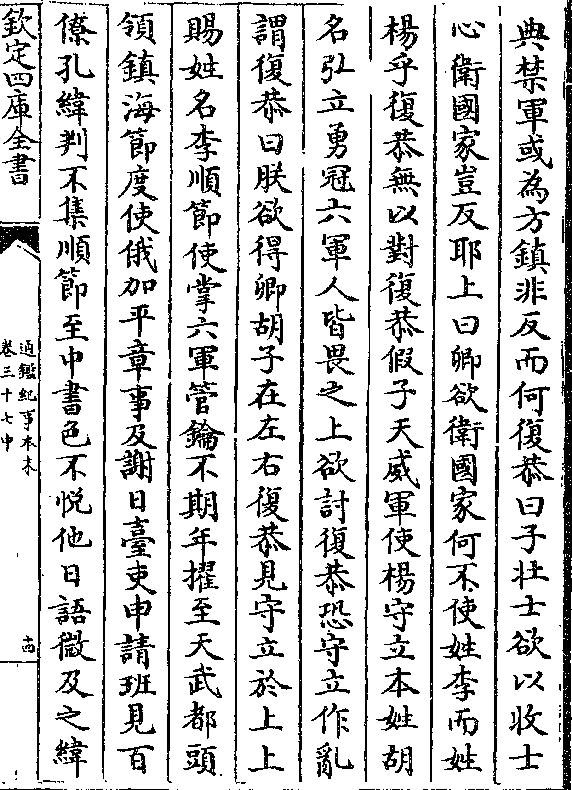 典禁軍或為方鎮非反而何復恭曰子壮士欲以收士
心衛國家豈反耶上曰卿欲衛國家何不使姓李而姓
楊乎復恭無以對復恭假子天威軍使楊守立本姓胡
名弘立勇冠六軍人皆畏之上欲討復恭恐守立作亂
謂復恭曰朕欲得卿胡子在左右復恭見守立於上上
賜姓名李順節使掌六軍管鑰不期年擢至天武都頭
領鎮海節度使俄加平章事及謝日臺吏申請班見百
僚孔緯判不集順節至中書色不悦他日語微及之緯
欽定四庫全書
通鑑紀事本末
卷三十七中
十四